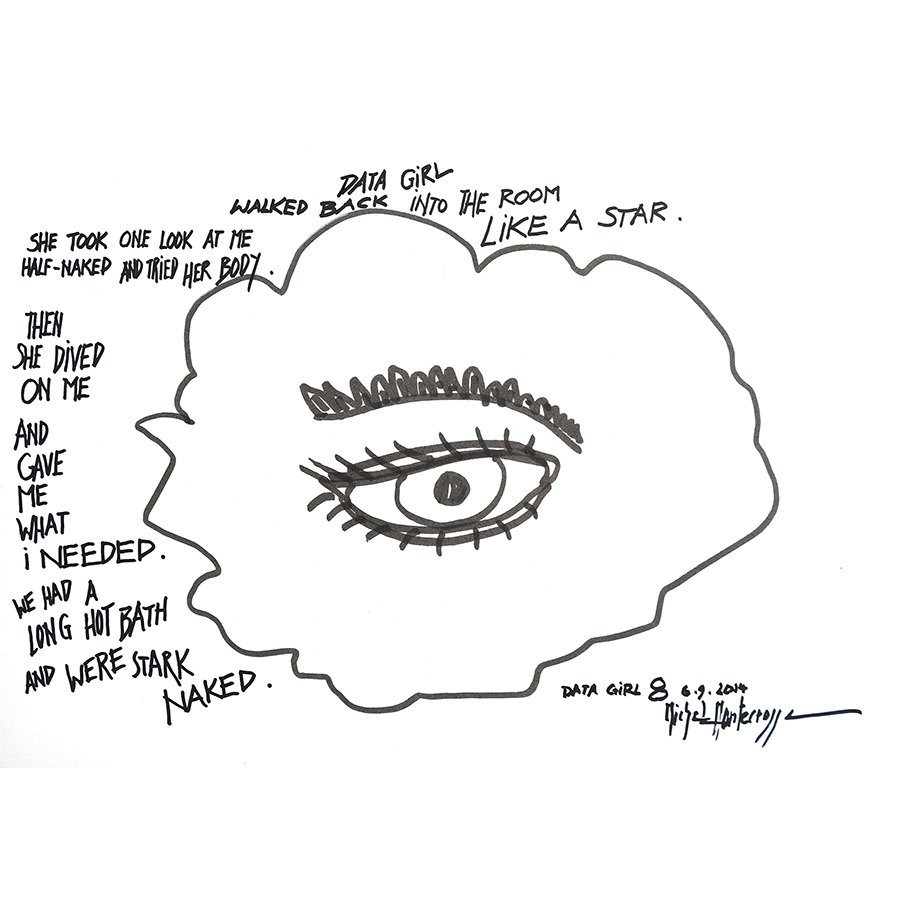 DATA GiRL
WALKED BACK iNTO THE ROOM
LiKE A STAR.
SHE TOOK ONE LOOK AT ME
HALF-NAKED AND TRiED HER BODY.
THEN
SHE DiVED
ON ME
AND
GAVE
ME
WHAT
i NEEDED.
WE HAD A
LONG HOT BATH
AND WERE STARK
NAKED.
DATA GiRL 8 6.9.2014
Michel Montecrossa